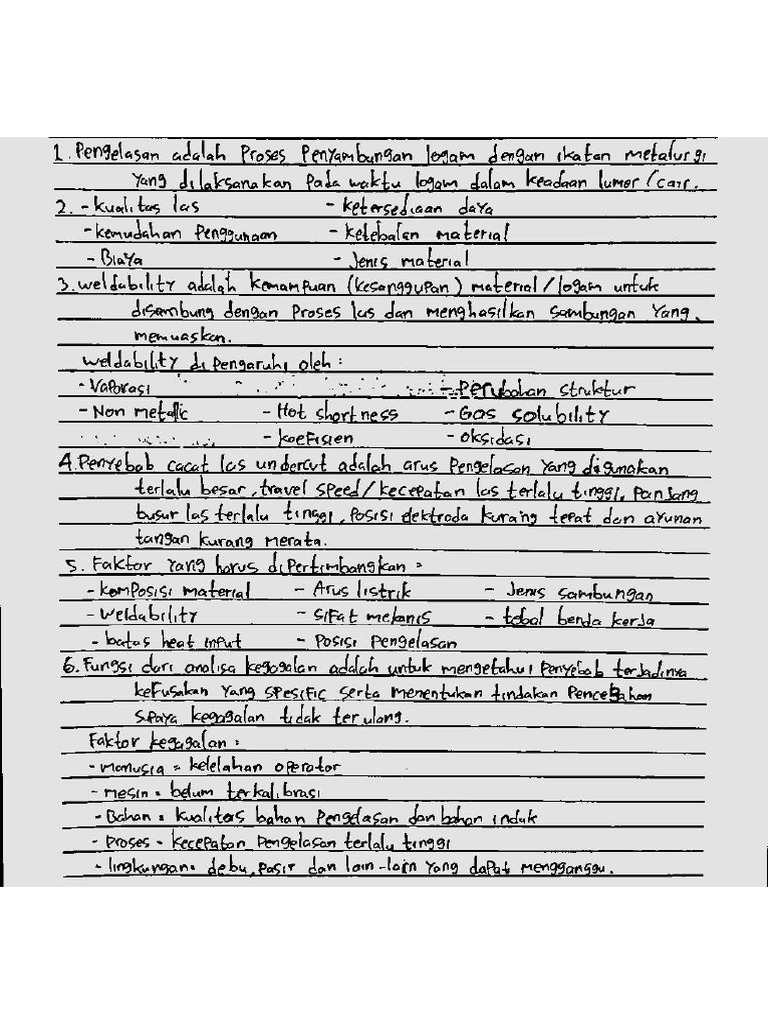 1. Pengelasan adalah Proses Penyambungan logam dengan ikatan metalurgi
yang dilaksanakan Pada waktu logam dalam keadaan lumer/cair.
2. - kualitas las - ketersediaan daya
- kemudahan Penggunaan - ketebalan material
- Biaya - Jenis material
3. weldability adalah kemampuan (kesanggupan) material/logam untuk
disambung dengan Proses las dan menghasilkan sambungan yang
memuaskan.
weldability di pengaruhi oleh :
- Vaporasi - Perubahan struktur
- Non metallic - Hot shortness - Gas solubility
- koefisien - oksidasi
4. Penyebab cacat las undercut adalah arus Pengelasan yang digunakan
terlalu besar, travel speed/kecepatan las terlalu tinggi, Panjang
busur las terlalu tinggi, Posisi elektroda kurang tepat dan ayunan
tangan kurang merata.
5. Faktor yang harus diPertimbangkan =
- komposisi material - Arus listrik - Jenis sambungan
- weldability - sifat mekanis - tebal benda kerja
- batas heat input - Posisi Pengelasan
6. Fungsi dari analisa kegagalan adalah untuk mengetahui Penyebab terjadinya
kefusakan yang spesific serta menentukan tindakan Pencegahan
supaya kegagalan tidak terulang.
Faktor kegagalan :
- manusia = kelelahan operator
- mesin = belum terkalibrasi
- Bahan = kualitas bahan Pengelasan dan bahan induk
- Proses = kecepatan Pengelasan terlalu tinggi
- lingkungan = debu, Pasir dan lain-lain yang dapat mengganggu.